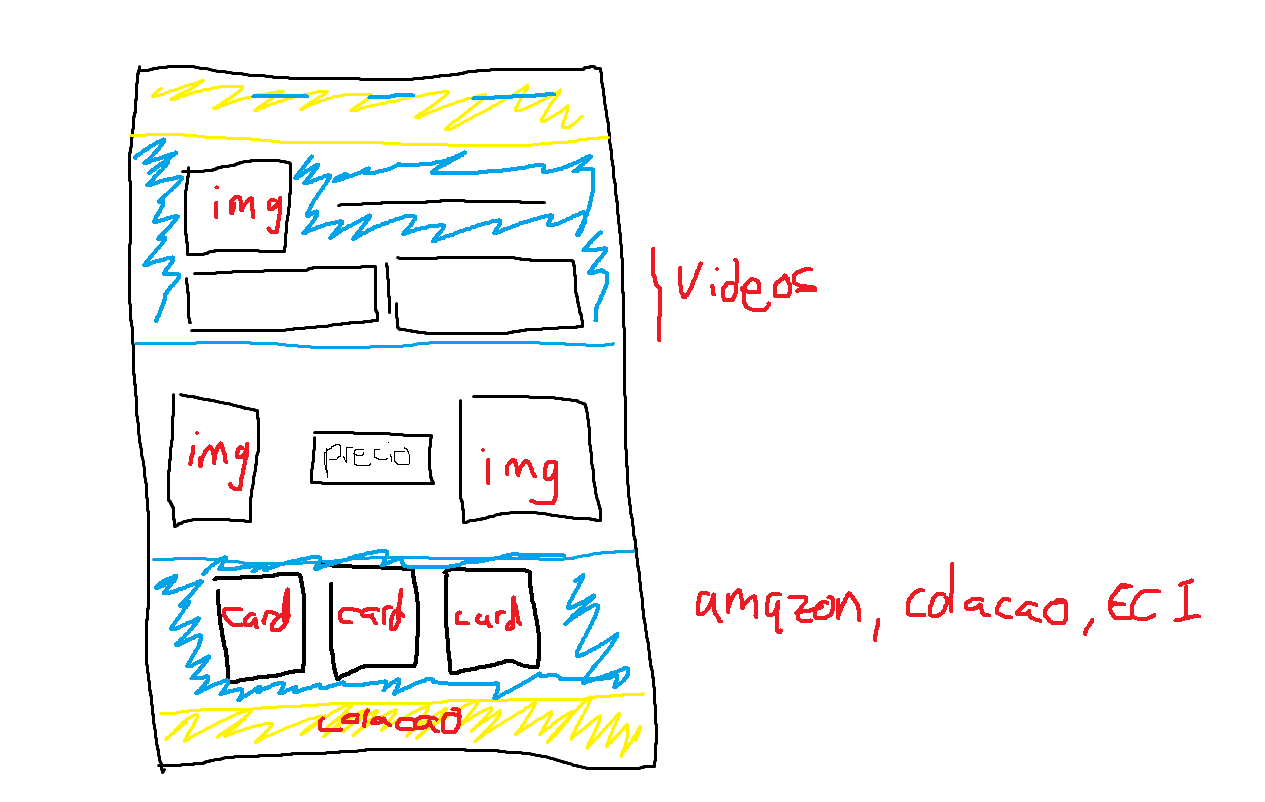 img
Videos
img
precio
img
card
card
card
amazon, colacao, ECI
colacao